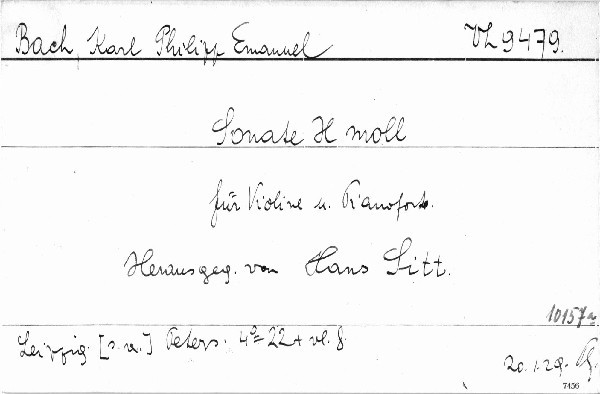 Bach, Karl Philipp Emanuel VL 9479.
Sonate H moll
für Violine u. Pianoforte.
Herausgeg. von Hans Sitt.
10157a
Leipzig. [s.a.] Peters. 4° 22 + vl. 8.
20.1.29.
7456